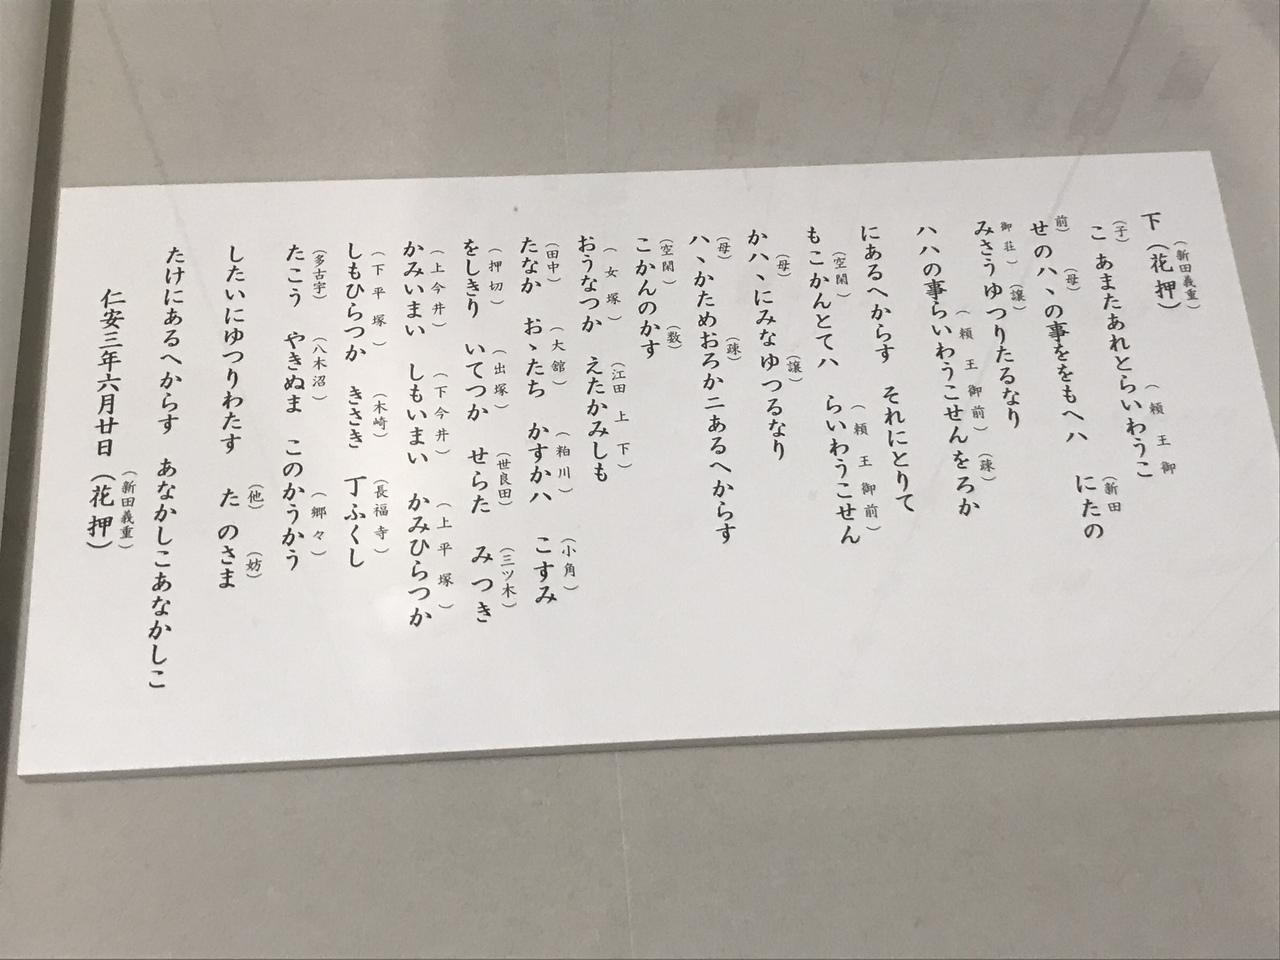 下（花押）
（新田義重）
こ　あまたあれとらいわうこ
（子）（頼王御
せのハヽの事ををもへハ　にたの
前）（母）（新田
みさうゆつりたるなり
御荘）（譲）
ハハの事らいわうこせんをろか
（頼王御前）（疎）
にあるへからす　それにとりて
もこかんとてハ　らいわうこせん
（空閑）（頼王御前）
かハヽにみなゆつるなり
（母）（譲）
ハヽかためおろかニあるへからす
（母）（疎）
こかんのかす
（空閑）（数）
おうなつか　えたかみしも
（女塚）（江田上下）
たなか　おヽたち　かすかハ　こすみ
（田中）（大舘）（粕川）（小角）
をしきり　いてつか　せらた　みつき
（押切）（出塚）（世良田）（三ツ木）
かみいまい　しもいまい　かみひらつか
（上今井）（下今井）（上平塚）
しもひらつか　きさき　丁ふくし
（下平塚）（木崎）（長福寺）
たこう　やきぬま　このかうかう
（多古宇）（八木沼）（郷々）
したいにゆつりわたす　た　のさま
（他）（妨）
たけにあるへからす　あなかしこあなかしこ
仁安三年六月廿日（花押）
（新田義重）